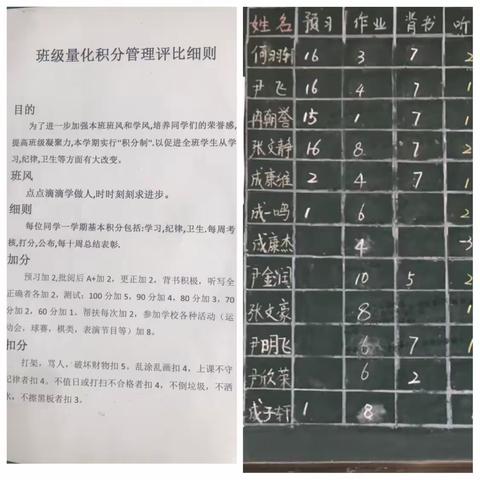 班级量化积分管理评比细则
目的
为了进一步加强本班班风和学风,培养同学们的荣誉感,
提高班级凝聚力,本学期实行"积分制".以促进全班学生从学
习,纪律,卫生等方面有大改变。
班风
点点滴滴学做人,时时刻刻求进步。
细则
每位同学一学期基本积分包括:学习,纪律,卫生.每周考
核,打分,公布,每十周总结表彰.
加分
预习加2,批阅后A+加2，更正加2，背书积极，听写全
正确者各加2，测试：100分加5，90分加4，80分加3，70
分加2，60分加1。帮扶每次加2，参加学校各种活动（运
动会，球赛，棋类，表演节目等）加8。
扣分
打架，骂人，破坏财物扣5。乱涂乱画扣4，上课不守
纪律者扣4。不值日或打扫不合格者扣4，不倒垃圾，不洒
水，不擦黑板者扣3。
姓名 预习 作业 背书 听
何羽轩 16 3 7 2
尹飞 16 4 7 1
冉翰誉 15 1 7 1
张文静 16 8 7 2
成康维 2 4 7 1
成一鸣 1 6 2
成康杰 4 -3
尹金润 10 5 2
张文豪 8 1
尹明飞 6 7 1
尹欣荣 6 2
成子轩 1 8